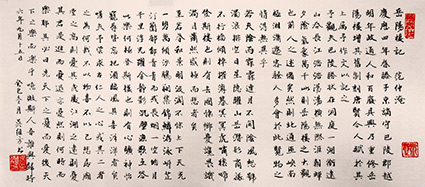 岳陽樓記 范仲淹
慶曆四年春滕子京謫守巴陵郡越
明年政通人和百廢具興乃重修岳
陽樓增其舊制刻唐賢今人詩賦於其
上屬予作文以記之
予觀夫巴陵勝狀在洞庭一湖銜遠
山吞長江浩浩湯湯橫無際涯朝暉
夕陰氣象萬千此則岳陽樓之大觀
也前人之述備矣然則北通巫峽南
極瀟湘遷客騷人多會於此覽物之
情得無異乎
若夫霪雨霏霏連月不開陰風怒號
濁浪排空日星隱曜山岳潛形商旅
不行檣傾楫摧薄暮冥冥虎嘯猿啼
登斯樓也則有去國懷鄉憂讒畏譏
滿目蕭然感極而悲者矣
至若春和景明波瀾不驚上下天光
一碧萬頃沙鷗翔集錦鱗游泳岸芷
汀蘭郁郁青青而或長煙一空皓月
千里浮光躍金靜影沉璧漁歌互答
此樂何極登斯樓也則有心曠神怡
寵辱皆忘把酒臨風其喜洋洋者矣
嗟夫予嘗求古仁人之心或異二者
之為何哉不以物喜不以己悲居廟
堂之高則憂其民處江湖之遠則憂
其君是進亦憂退亦憂然則何時而
樂耶其必曰先天下之憂而憂後天
下之樂而樂乎噫微斯人吾誰與歸時
六年九月十五日 癸巳冬月